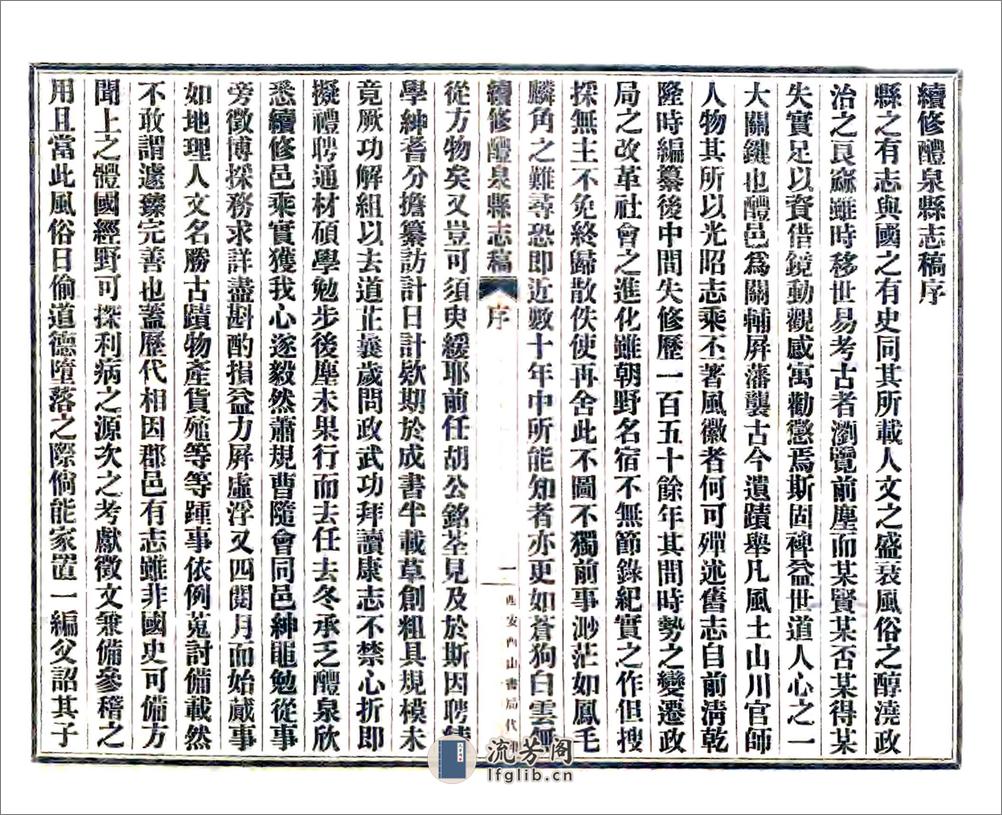 續修醴泉縣志稿序
縣之有志與國之有史同其所載人文之盛衰風俗之醇澆政
治之良窳雖時移世易考古者瀏覽前塵而某賢某否某得某
失實足以資借鏡動觀感寓勸懲焉斯固裨益世道人心之一
大關鍵也醴邑爲關輔屏藩襲古今遺蹟舉凡風土山川官師
人物其所以光昭志乘丕著風徽者何可殫述舊志自前清乾
隆時編纂後中間失修歷一百五十餘年其間時勢之變遷政
局之改革社會之進化雖朝野名宿不無節錄紀實之作但搜
採無主不免終歸散佚使再舍此不圖不獨前事渺茫如鳳毛
麟角之難尋恐即近數十年中所能知者亦更如蒼狗白雲無
續修醴泉縣志稿 序 一 西安西山書局代印
從方物矣又豈可須臾緩耶前任胡公銘荃見及於斯因聘績
學紳耆分擔纂訪計日計欵期於成書半載草創粗具規模未
竟厥功解組以去道芷曩歲問政武功拜讀康志不禁心折即
擬禮聘通材碩學勉步後塵未果行而去任去冬承乏醴泉欣
悉續修邑乘實獲我心遂毅然蕭規曹隨會同邑紳黽勉從事
旁徵博採務求詳盡斟酌損益力屏虛浮又四閱月而始蕆事
如地理人文名勝古蹟物產貨殖等等踵事依例蒐討備載然
不敢謂遽臻完善也蓋歷代相因郡邑有志雖非國史可備方
聞上之體國經野可探利病之源次之考獻徵文兼備參稽之
用且當此風俗日偷道德墮落之際倘能家置一編父詔其子
流芳阁
lfglib.cn